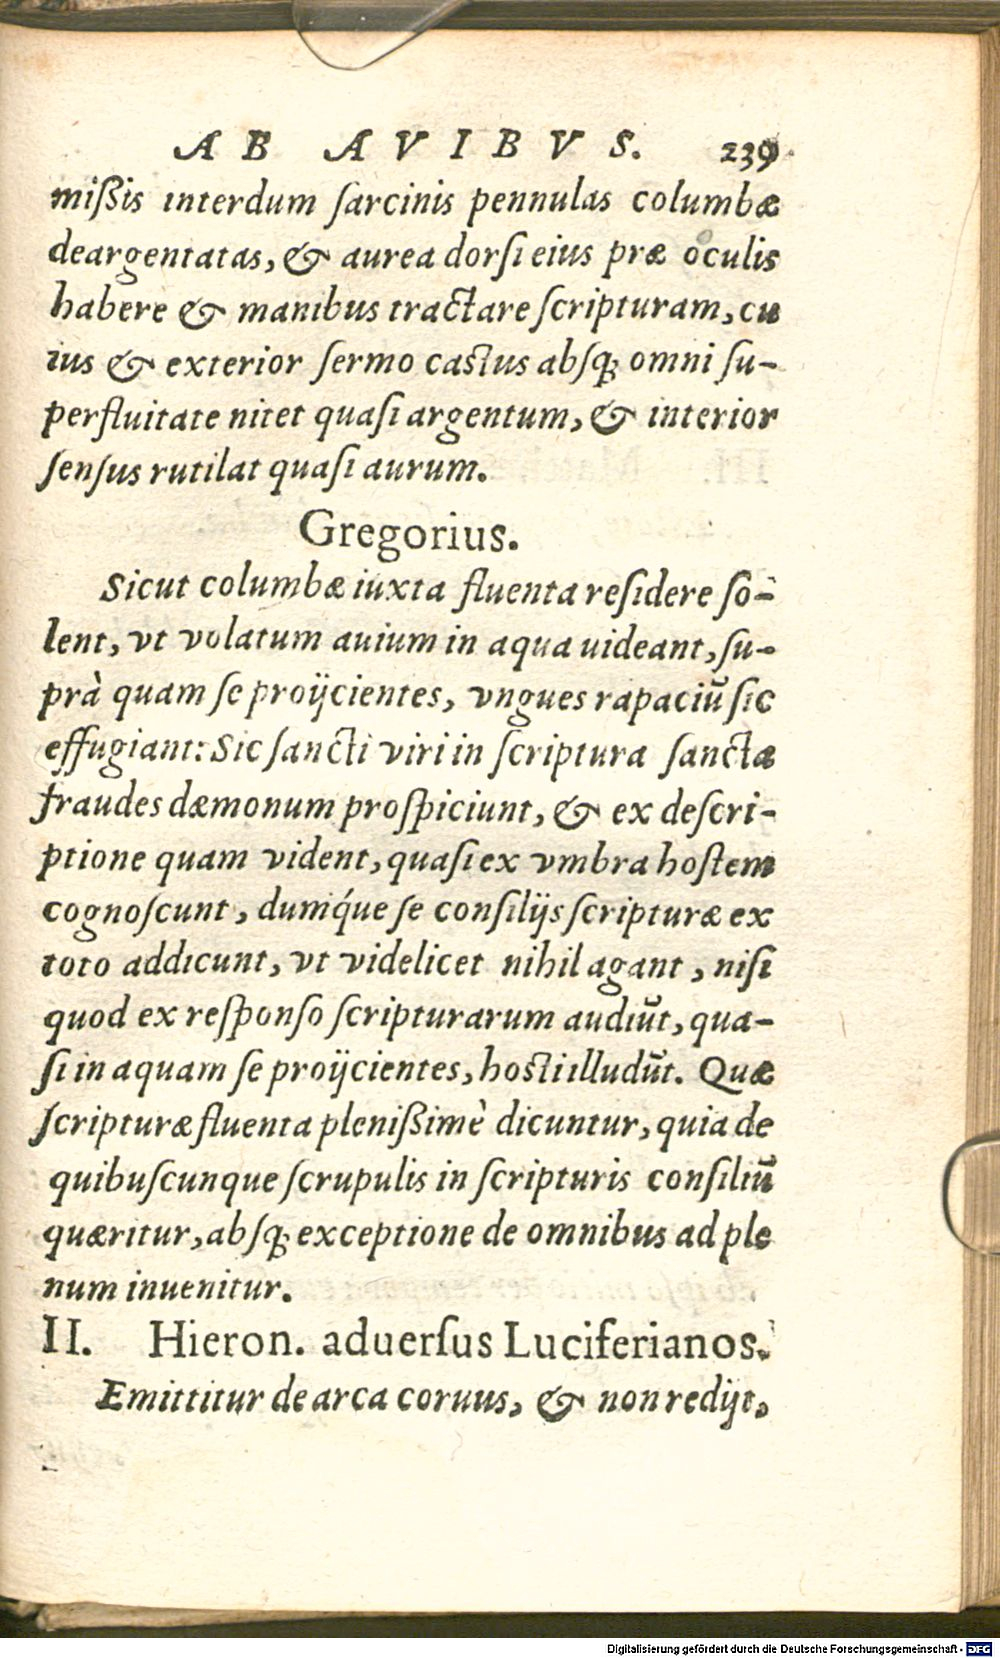 AB AVIBVS. 239
mißis interdum ſarcinis pennulas columbæ
deargentatas, & aurea dorſi eius præ oculis
habere & manibus tractare ſcripturam, cu
ius & exterior ſermo caſtus abſq; omni ſu-
perfluitate nitet quaſi argentum, & interior
ſenſus rutilat quaſi aurum.
Gregorius.
Sicut columbæ iuxta fluenta reſidere ſo-
lent, vt volatum auium in aqua uideant, ſu-
prà quam ſe proijcientes, vngues rapaciũ ſic
effugiant: Sic ſancti viri in ſcriptura ſanctæ
fraudes dæmonum proſpiciunt, & ex deſcri-
ptione quam vident, quaſi ex vmbra hoſtem
cognoſcunt, dumq́ue ſe conſilijs ſcripturæ ex
toto addicunt, vt videlicet nihil agant, niſi
quod ex reſponſo ſcripturarum audiũt, qua-
ſi in aquam ſe proijcientes, hoſti illudũt. Quæ
ſcripturæ fluenta pleniſſimè dicuntur, quia de
quibuſcunque ſcrupulis in ſcripturis conſiliũ
quæritur, abſq; exceptione de omnibus ad ple
num inuenitur.
II. Hieron. aduerſus Luciferianos.
Emittitur de arca coruus, & non redijt,
Digitalisierung gefördert durch die Deutsche Forschungsgemeinschaft - DFG